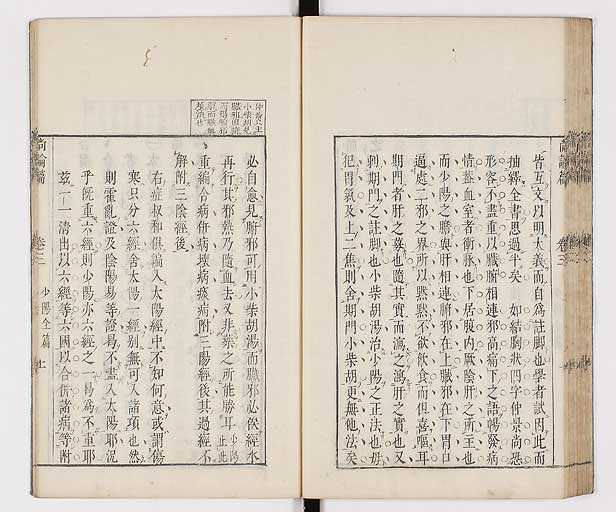 皆互文以明大義而自為註脚也學者試因此而
抽繹全書思過半矣 如結胸狀四字仲景尚恐
形容不盡重以臟腑相連邪高痛下之語暢發病
情葢血室者衝脉也下居腹內厥陰肝之所主也
而少陽之膽與肝相連腑邪在上臟邪在下胃口
逼處二邪之界所以默默不欲飲食而但喜嘔耳
期門者肝之募也隨其實而瀉之瀉肝之實也又
刺期門之註脚也小柴胡湯治少陽之正法也毋
犯胃氣及上二焦則舍期門小柴胡更無他法矣
必自愈見腑邪可用小柴胡湯而臟邪必俟經水
再行其邪熱乃隨血去又非藥之所能勝耳
少陽
止此
重編合病併病壞病痰病附三陽經後其過經不
解附三陰經後
右症叔和俱編入太陽經中不知何意或謂傷
寒只分六經舍太陽一經別無可入諸項也然
則霍亂證及陰陽易等證曷不盡入太陽耶況
乎旣重六經則少陽亦六經之一曷為不重耶
茲一一清出以六經等六國以合併諸病等附
尚論篇
卷三
少陽全篇